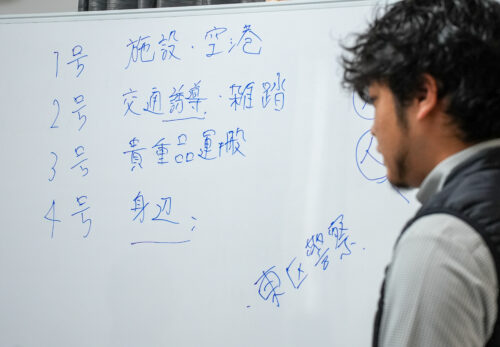 1号 施設・空港
2号 交通誘導・雑踏
3号 貴重品運搬
4号 身辺
人
東区警察